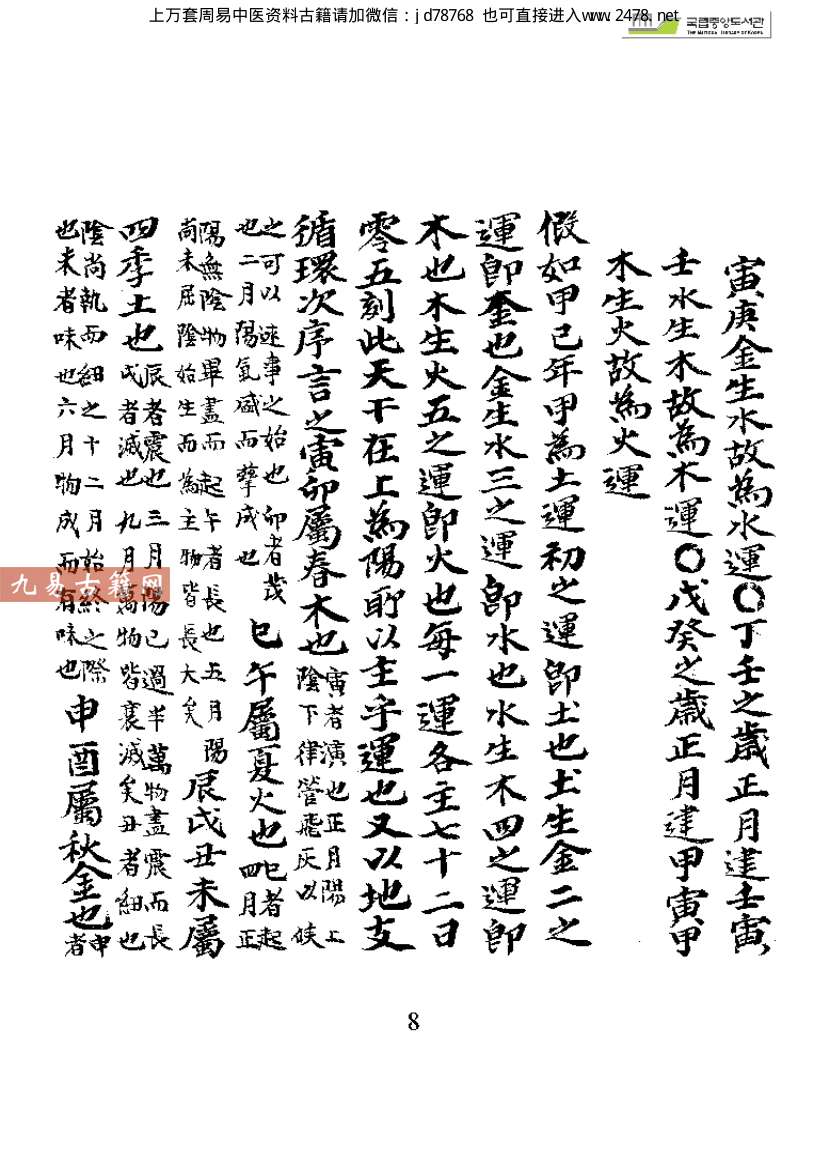 上万套周易中医资料古籍请加微信：jd78768 也可直接进入www.2478.net
국립중앙도서관
THE NATIONAL LIBRARY OF KOREA
寅庚金生水故為水運〇丁壬之歲正月建壬寅
壬水生木故為木運〇戊癸之歲正月建甲寅甲
木生火故為火運
假如甲己年甲為土運初之運即土也土生金二之
運即金也金生水三之運即水也水生木四之運即
木也木生火五之運即火也每一運各主七十二日
零五刻此天干在上為陽所以主乎運也又以地支
循環次序言之寅卯屬春木也寅者演也正月陽上陰下律管飛灰以候
之可以速事之始也卯者茂也二月陽氣盛而孳成也巳午屬夏火也巳者起四月正
陽無陰物畢盡而起午者長也五月陽尚未屈陰始生而為主物皆長大矣辰戌丑未屬
四季土也辰者震也三月陽已過半萬物盡震而長戌者滅也九月萬物皆衰滅矣丑者紐也
陰尚執而紐之十二月始終之際也未者味也六月物成而有味也申酉屬秋金也申者
九易古籍网
8